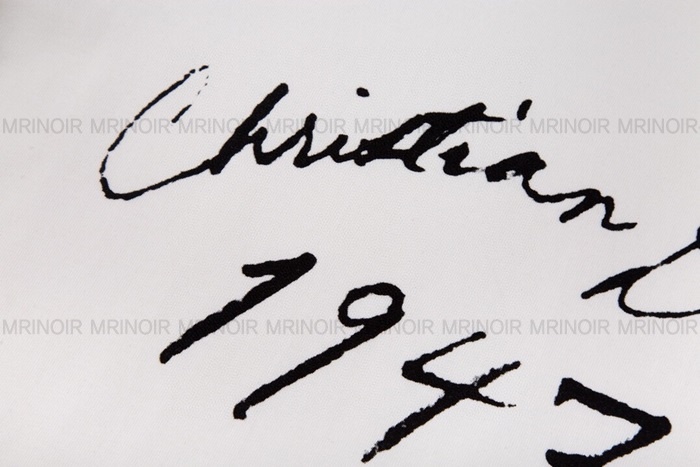 Christian D
1947
MRINOIR MRINOIR MRINOIR MRINOIR MRINOIR MRINOIR MRINOIR MRINOIR
MRINOIR MRINOIR MRINOIR MRINOIR MRINOIR MRINOIR MRINOIR MRINOIR